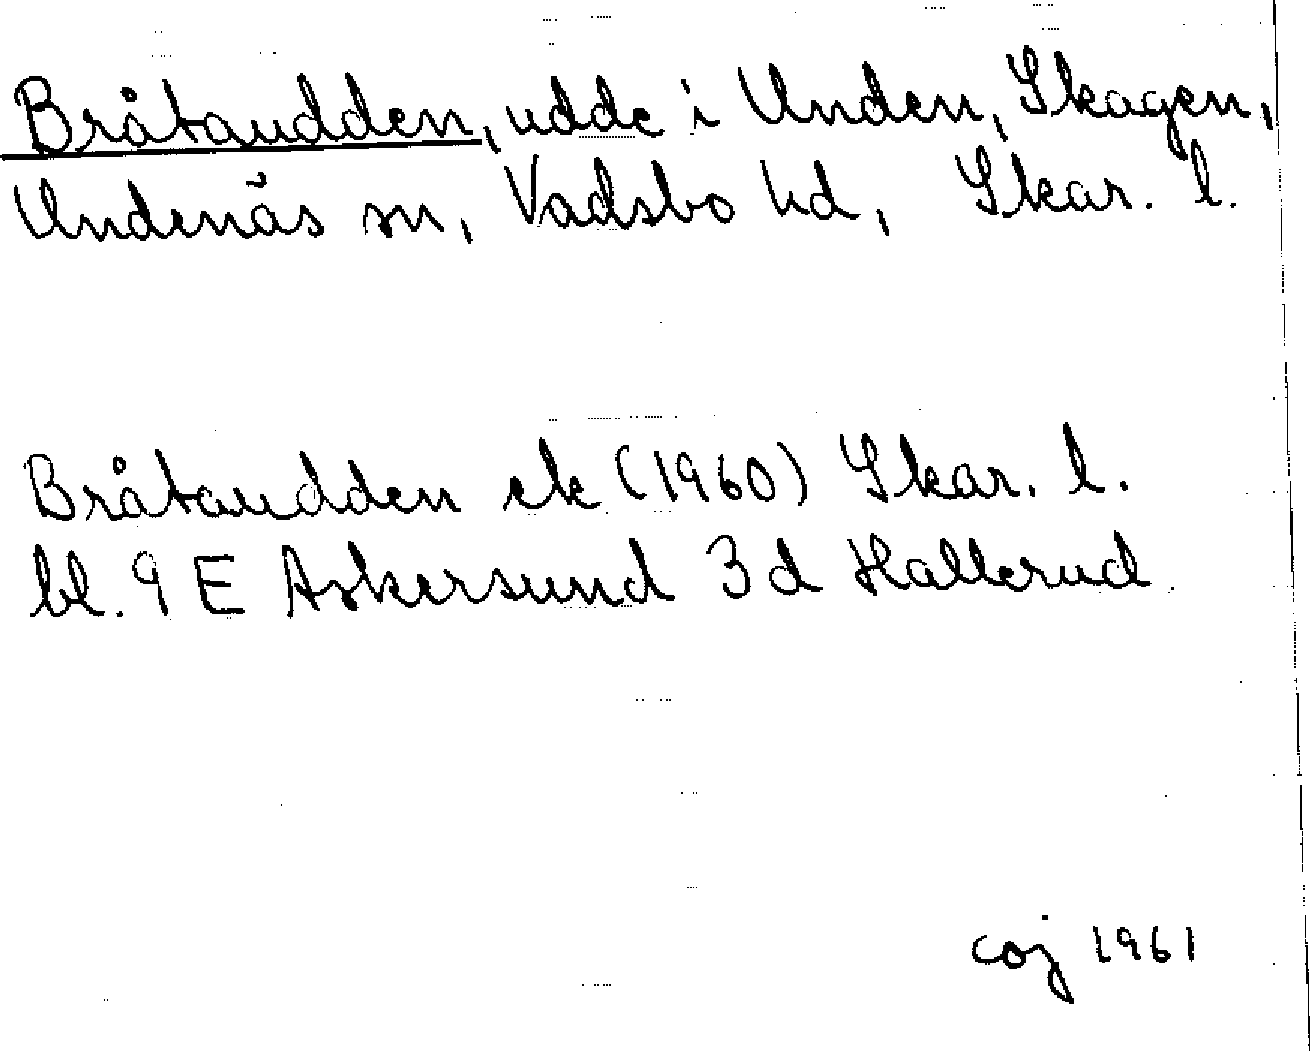 Bråtaudden, udde i Unden, Skagen,
Undenäs sn, Vadsbo hd, Skar. l.
Bråtaudden ek (1960) Skar. l.
bl. 9 E Askersund 3 d Hallerud.
coj 1961